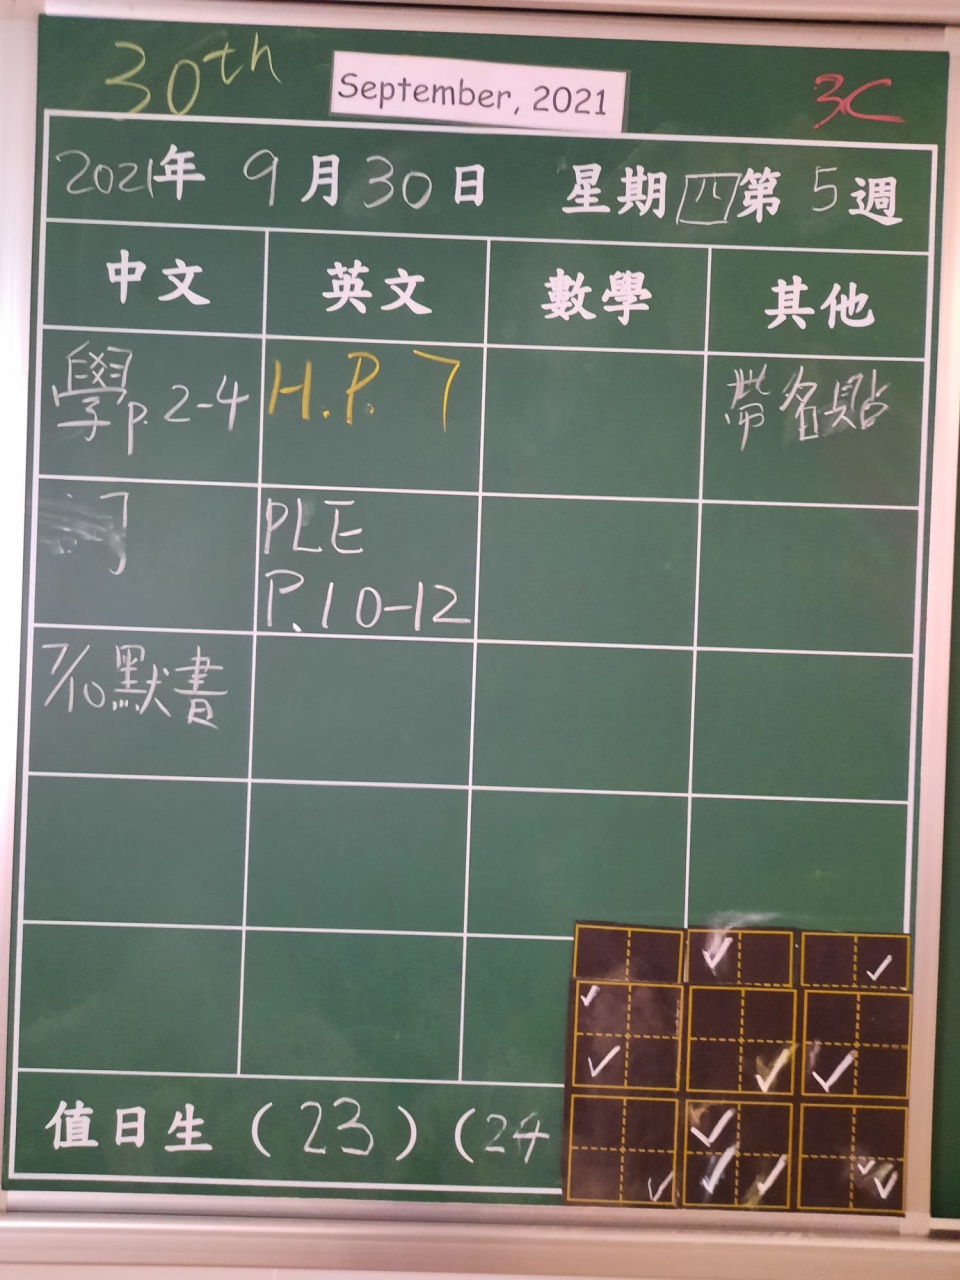 30th
September, 2021
3C
2021年 9月30日 星期四第5週
中文 英文 數學 其他
學p.2-4 H.P. 7 帶名貼
PLE
P.10-12
7/10默書
值日生(23)(24